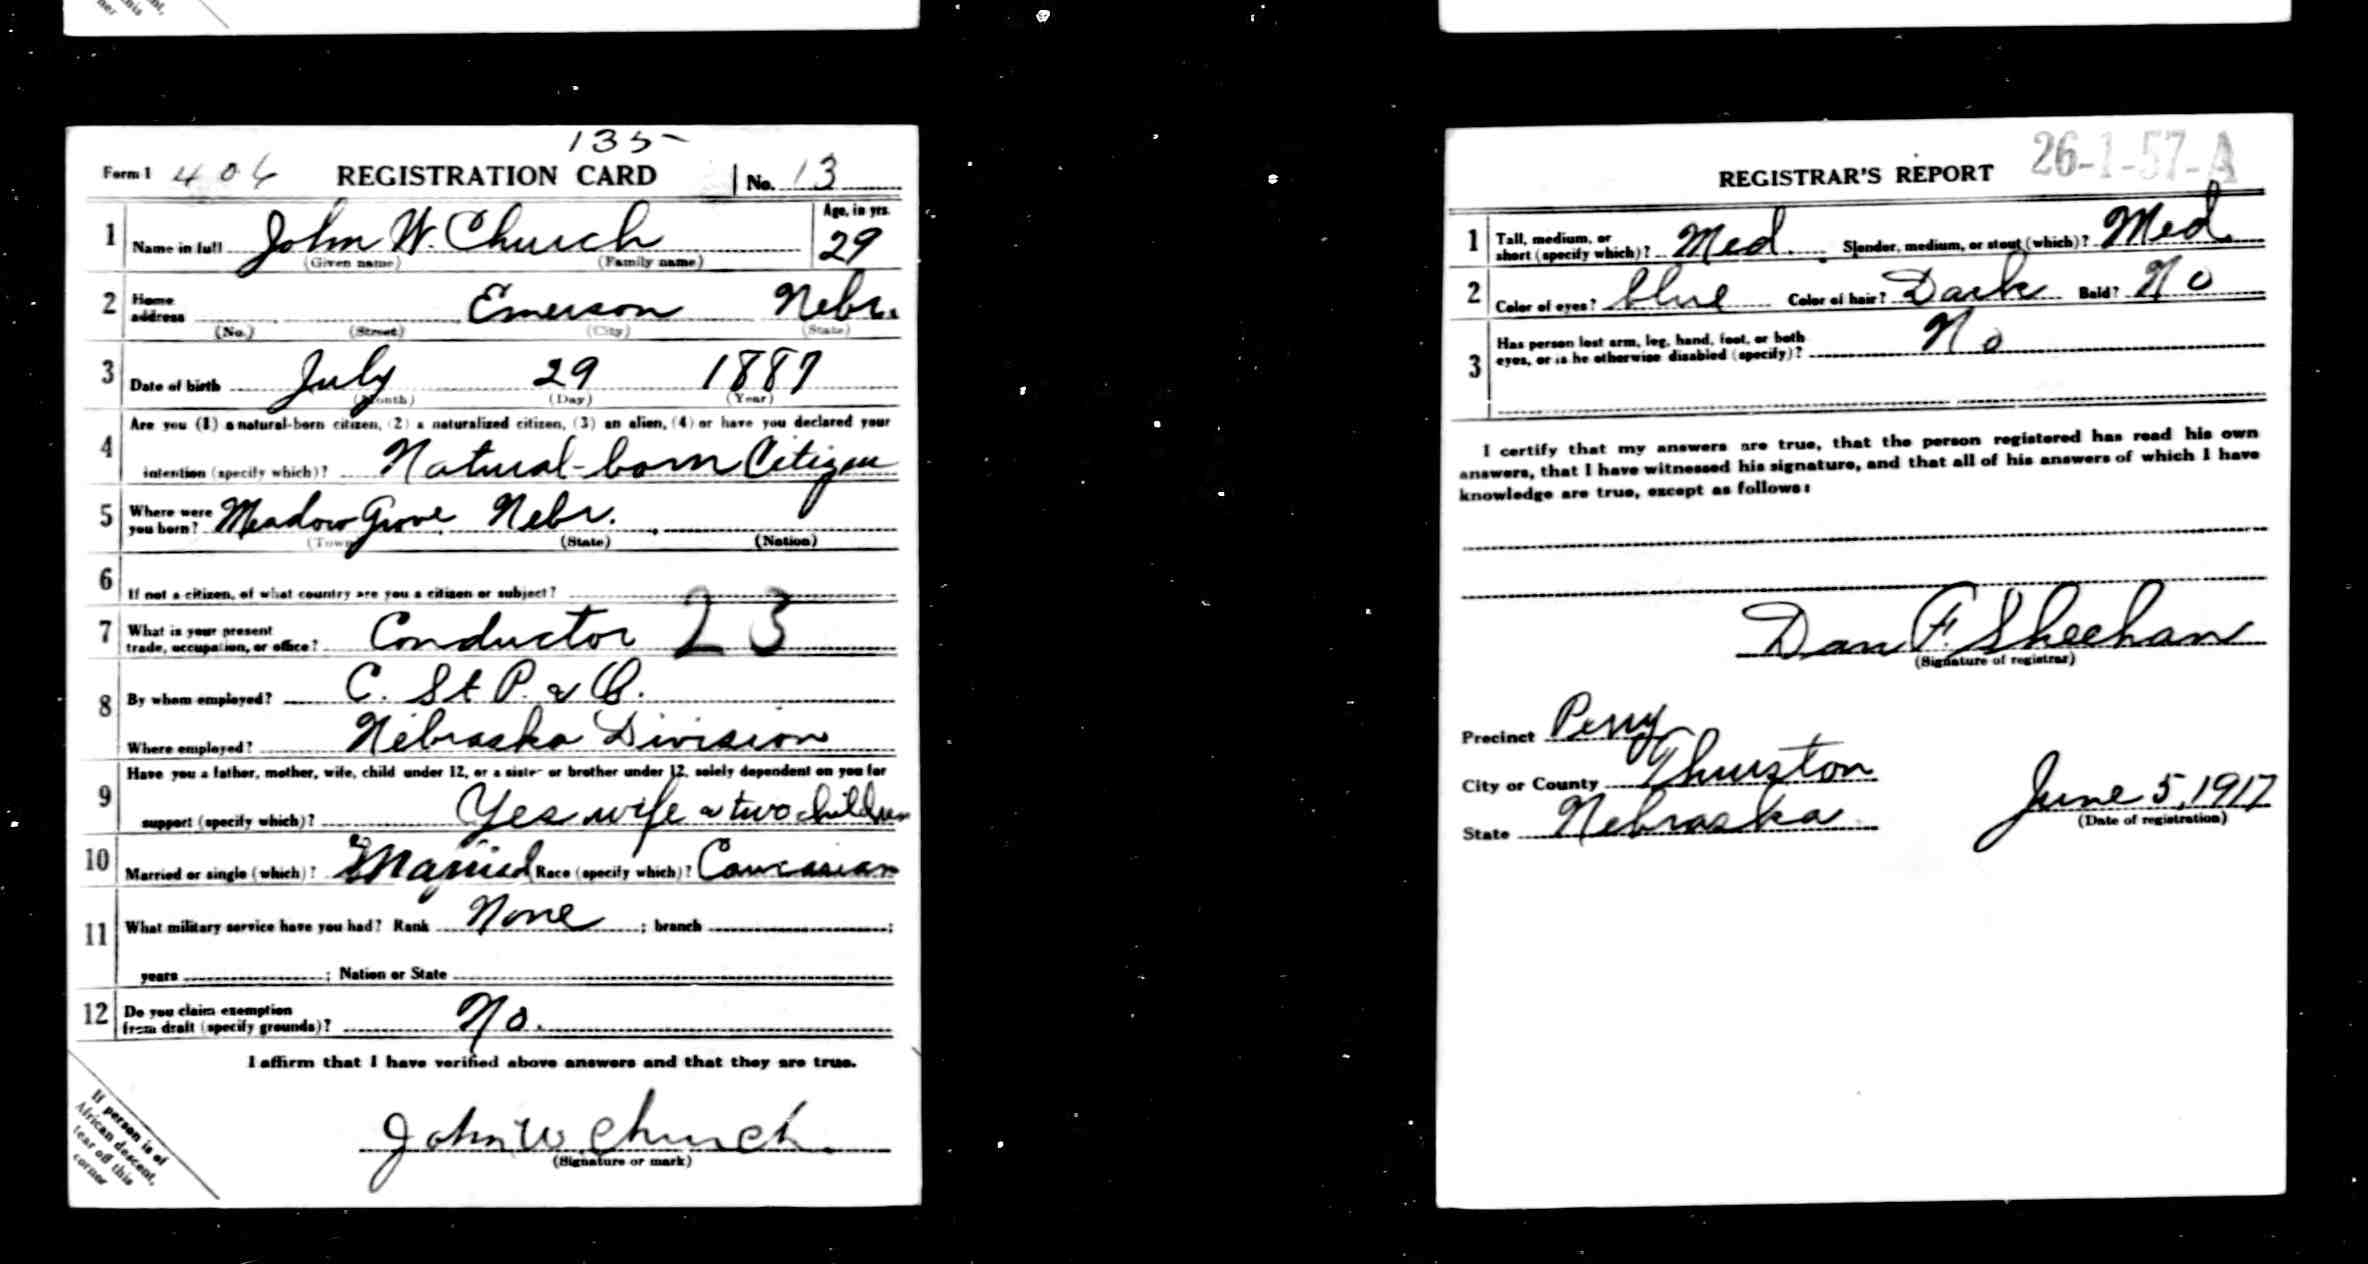 135
Form 1 406 REGISTRATION CARD No. 13
1 Name in full John W. Church Age, in yrs. 29
(Given name) (Family name)
2 Home address Emerson Nebr.
(No.) (Street) (City) (State)
3 Date of birth July 29 1887
(Month) (Day) (Year)
4 Are you (1) a natural-born citizen, (2) a naturalized citizen, (3) an alien, (4) or have you declared your
intention (specify which)? Natural-born Citizen
5 Where were you born? Meadow Grove Nebr.
(Town) (State) (Nation)
6 If not a citizen, of what country are you a citizen or subject?
7 What is your present trade, occupation, or office? Conductor 23
8 By whom employed? C. St P. & O.
Where employed? Nebraska Division
9 Have you a father, mother, wife, child under 12, or a sister or brother under 12, solely dependent on you for
support (specify which)? Yes wife & two children
10 Married or single (which)? Married Race (specify which)? Caucasian
11 What military service have you had? Rank None ; branch ;
years ; Nation or State
12 Do you claim exemption from draft (specify grounds)? No.
I affirm that I have verified above answers and that they are true.
John W Church
(Signature or mark)
If person is of
African descent,
tear off this
corner
REGISTRAR'S REPORT 26-1-57-A
1 Tall, medium, or short (specify which)? Med. Slender, medium, or stout (which)? Med.
2 Color of eyes? blue Color of hair? Dark Bald? No
3 Has person lost arm, leg, hand, foot, or both
eyes, or is he otherwise disabled (specify)? No
I certify that my answers are true, that the person registered has read his own
answers, that I have witnessed his signature, and that all of his answers of which I have
knowledge are true, except as follows:
Dan F. Sheehan
(Signature of registrar)
Precinct Perry
City or County Thurston
State Nebraska June 5, 1917
(Date of registration)